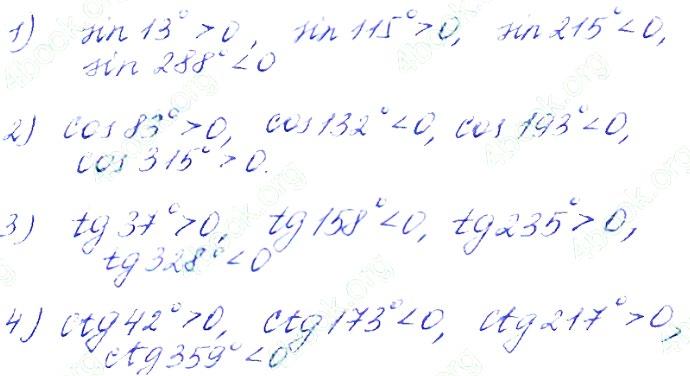 1) sin 13° > 0, sin 115° > 0, sin 215° < 0,
sin 288° < 0
2) cos 83° > 0, cos 132° < 0, cos 193° < 0,
cos 315° > 0.
3) tg 37° > 0, tg 158° < 0, tg 235° > 0,
tg 328° < 0
4) ctg 42° > 0, ctg 173° < 0, ctg 217° > 0,
ctg 359° < 0